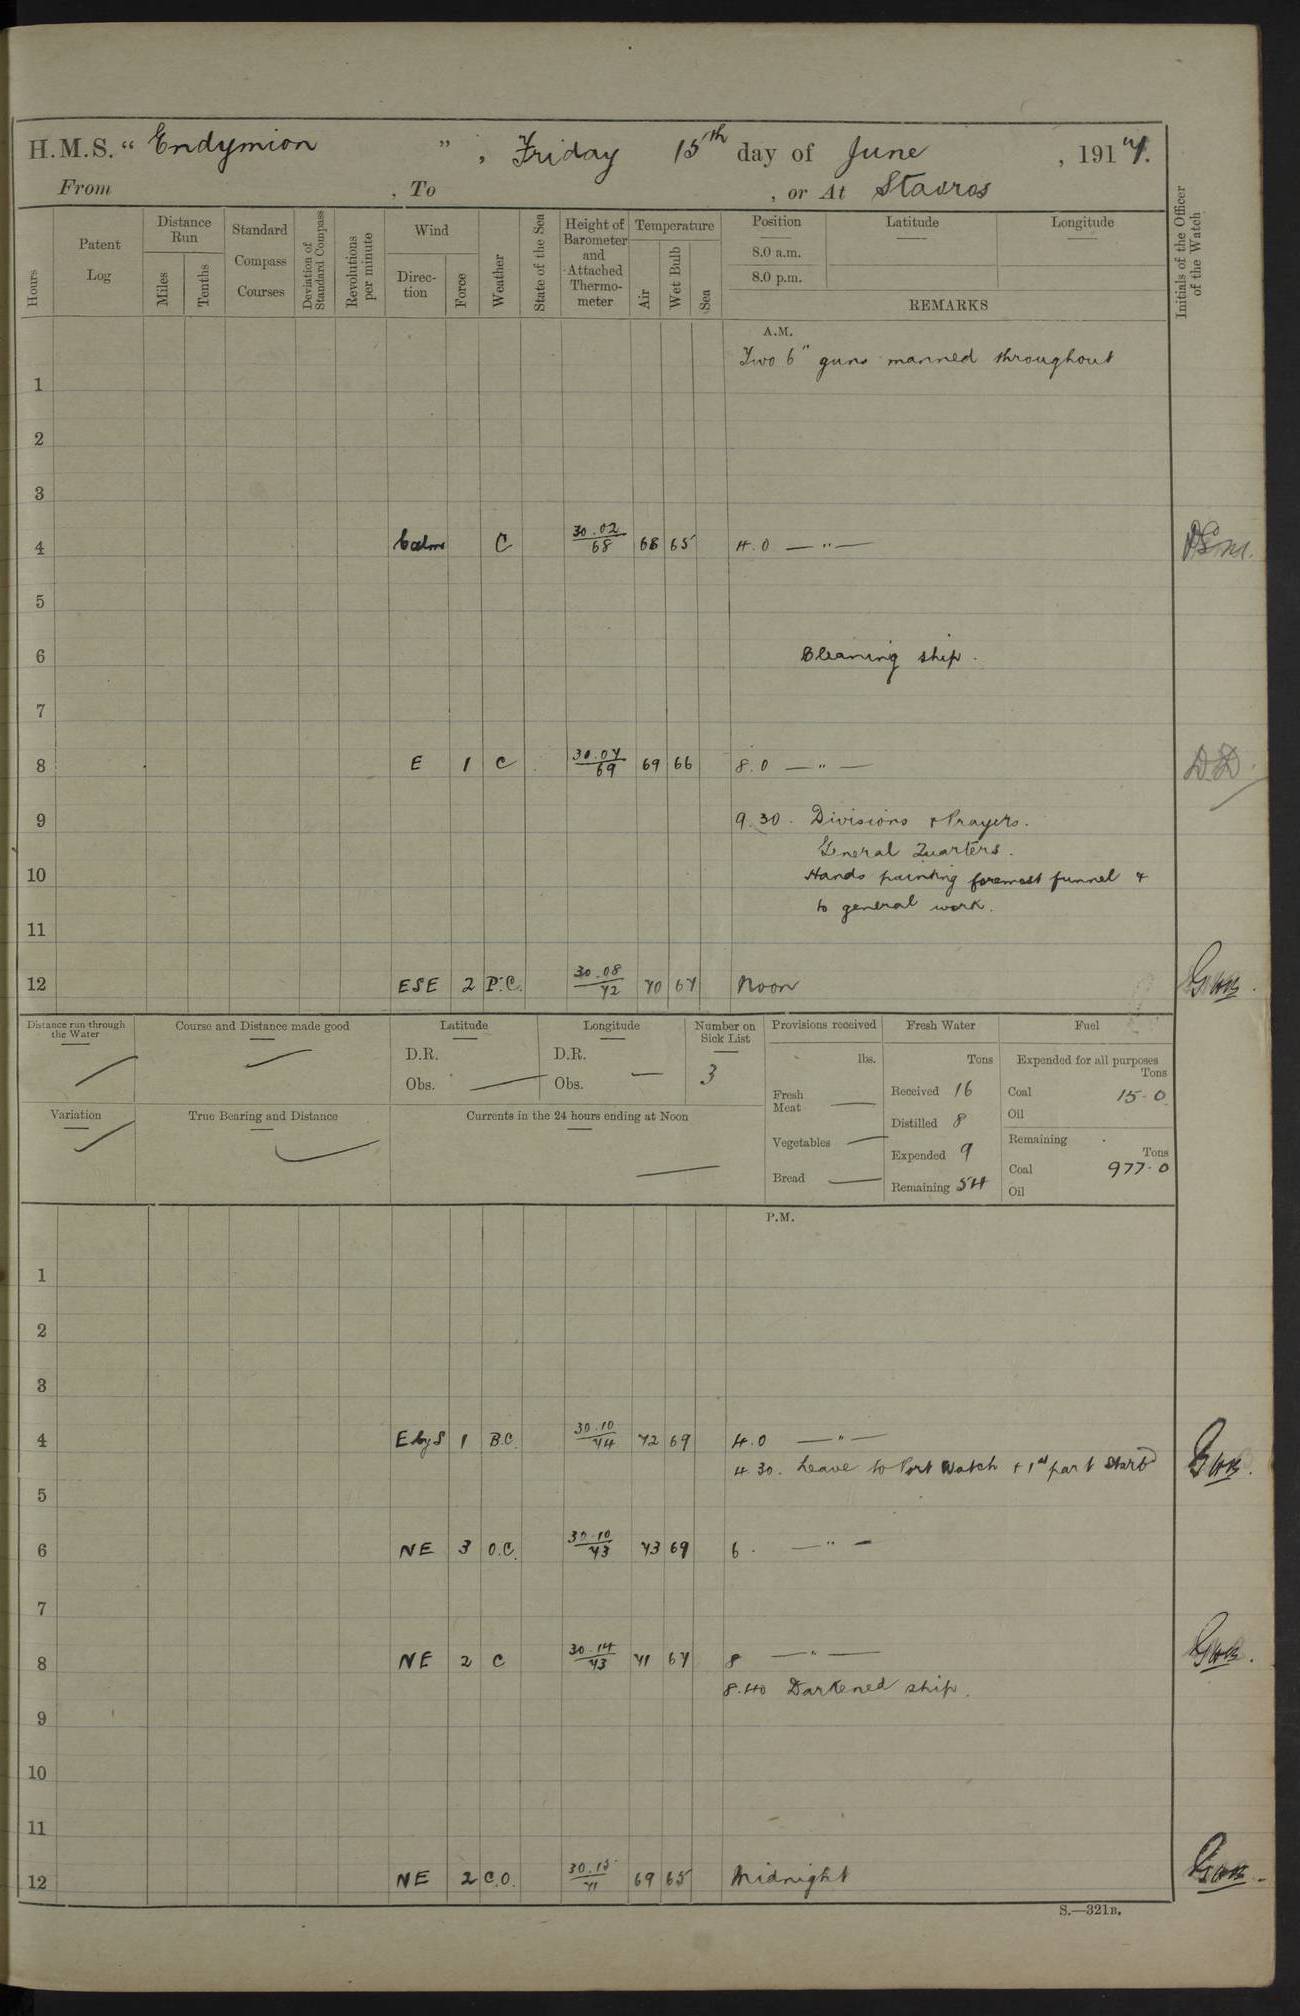 H.M.S. “ Endymion ” , Friday 15th day of June , 1917.
From , To , or At Stavros
Hours
Patent Log
Distance Run
Miles
Tenths
Standard Compass Courses
Deviation of Standard Compass
Revolutions per minute
Wind
Direc- tion
Force
Weather
State of the Sea
Height of Barometer and Attached Thermo- meter
Temperature
Air
Wet Bulb
Sea
Position
8.0 a.m.
8.0 p.m.
Latitude
Longitude
REMARKS
Initials of the Officer of the Watch
A.M.
Two 6" guns manned throughout
1
2
3
4 Calm C 30.02 68 68 65 4.0 — " —
5
6 Cleaning ship.
7
8 E 1 C 30.07 69 69 66 8.0 — " — D.D.
9 9.30. Divisions & Prayers.
General Quarters.
10 Hands painting foremost funnel &
to general work.
11
12 ESE 2 P.C. 30.08 72 70 67 Noon
Distance run through the Water
Course and Distance made good
Latitude
D.R.
Obs.
Longitude
D.R.
Obs.
Number on Sick List
3
Provisions received
lbs.
Fresh Meat
Vegetables
Bread
Fresh Water
Tons
Received 16
Distilled 8
Expended 9
Remaining 54
Fuel
Expended for all purposes
Tons
Coal 15.0
Oil
Remaining
Tons
Coal 977.0
Oil
Variation
True Bearing and Distance
Currents in the 24 hours ending at Noon
P.M.
1
2
3
4 E by S 1 B.C. 30.10 74 72 69 4.0 — " —
4.30. Leave to Port Watch & 1st part Starbd
5
6 NE 3 O.C. 30.10 73 73 69 6. — " —
7
8 NE 2 C 30.14 73 71 67 8 — " —
8.40 Darkened ship.
9
10
11
12 NE 2 C.O. 30.15 71 69 65 Midnight
S.—321B.